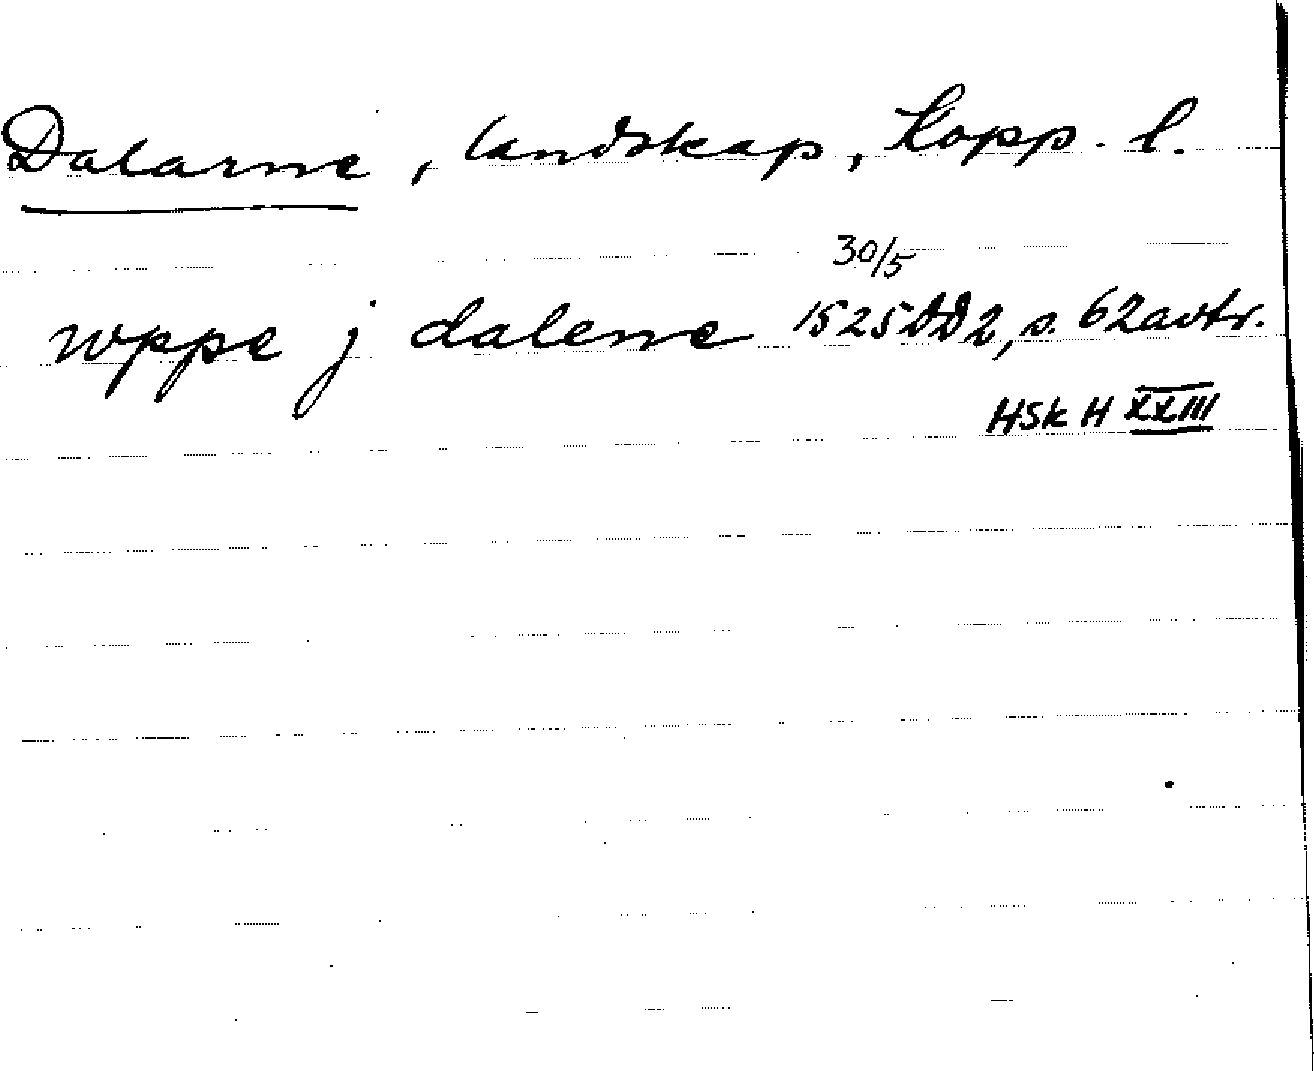 Dalarne, landskap, Kopp. l.
30/5
wppe j dalene 1525 DD2, s. 62 avtr.
HSK H XXIII